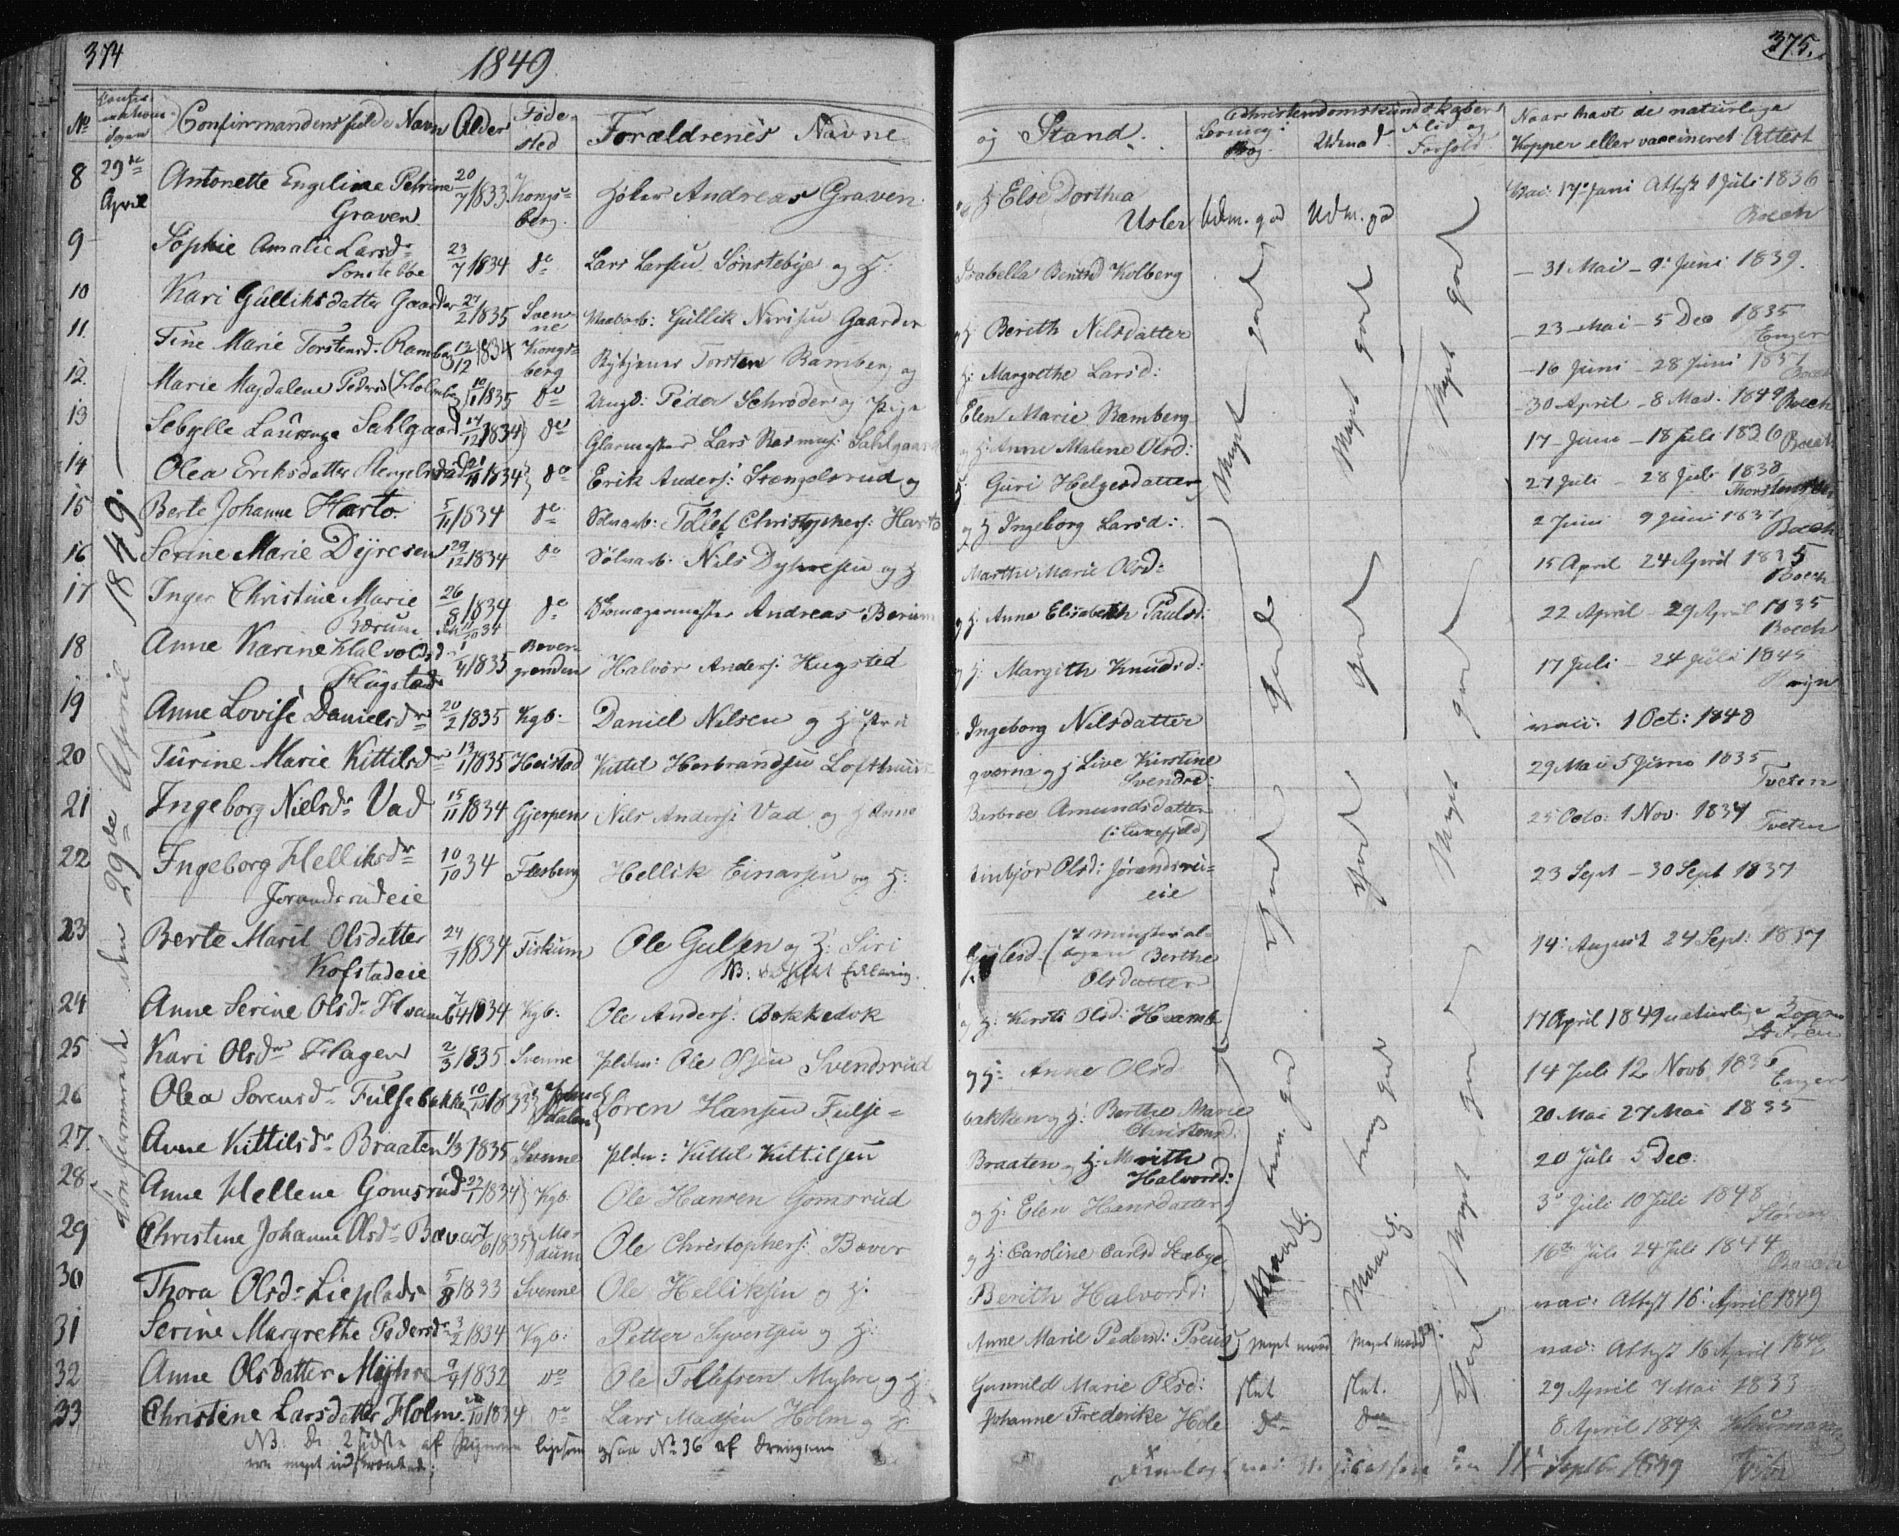 374
1849
375.
No Confirmandens fulde Navn Alder Fødested Forældrenes Navne og Stand. Christendomskundskaber Udmd. Flid og Forhold. Naar havt de naturlige Kopper eller vaccineret Attest
Confirmeret den 29de April 1849.
8 29de April Antonette Engeline Petrine Graven 20/7 1833 Kongsberg. Høker Andreas Graven og H Else Dorthea Usler Udm. god Udm. god Vac: 17 Juni Attest 1 Juli 1836 Boeck
9 Sophie Amalie Larsdr Sønstebye 23/7 1834 do Lars Larsen Sønstebye og H: Isabella Berntsd Kolberg Meget god Meget god Meget god 31 Mai - 9 Juni 1839.
10 Kari Gulliksdatter Gaarder /2 1835 Svenne Gullik Nirisen Gaarder og H: Berith Nilsdatter 23 Mai - 5 Dec 1835 Enger
11. Tine Marie Torstensd. Ramberg 13/12 1834 Kongsberg Torsten Ramberg og H: Margrethe Larsd: 16 Juni - 28 Juni 1837 Boeck
12. Marie Magdalene Pedersd (Holmberg) 10/1 1835 do Ungk: Peder Schrøder og Pige Elen Marie Ramberg 30 April - 8 Mai. 1849 Boeck
13 Sebylle Laurenze Sahlgaard 17/12 1834 do Glarmester Lars Rasmus: Sahlgaard og H: Anne Malene Olsd: 17 Juni - 18 Juli 1836 Boeck
14 Olea Eriksdatter Stengelsrud 1834 do Erik Anders: Stengelsrud og H: Guri Helgesdatter 27 Juli - 28 Juli 1838
15 Berte Johanne Harto. 5/11 1834 do Sølvarb: Tollef Christophers: Harto og H Ingeborg Larsd: 2 Juni 9 Juni 1837 Boeck
16 Serine Marie Dyresen 29/12 1834 do Sølvarb. Nils Dyhresen og H Marthe Marie Olsd: 15 April 24 April 1835 Boeck
17 Inger Christine Marie Bærum 26/8 1834 do Skomagermester Andreas Berum og H: Anne Elisabeth Paulsd: 22 April - 29 April 1835 Boeck
18 Anne Karine Halvorsd. Hugstad 1/4 1835 Halvor Anders: Hugsted og H: Margith Knudsd: 17 Juli 24 Juli 1845
19 Anne Lovise Danielsdr 20/2 1835 Kgb: Daniel Nilsen og Hustru Ingeborg Nilsdatter vaci: 1 Oct: 1848
20 Turine Marie Kittilsdr 13/1 1835 Heistad Kittel Herbrandsen Lofthuus- qverna og H: Live Kirstine Svendsd: 29 Mai 5 Juno 1835 Tveten
21 Ingeborg Nielsdr Vad 15/11 1834 Gjerpen Nils Anders: Vad og H Anne Berbroe Amundsdatter (i Luxefjeld) God God Meget god 25 Octo: 1 Nov. 1834 Tveten
22 Ingeborg Helliksdr Jorandsrudeie 10/10 34 Flesberg Hellik Einarsen og H: Jørandsrudeie 23 Sept - 30 Sept 1837
23 Berte Marit Olsdatter Kofstadeie 24/7 1834 Fiskum Ole Gulsen og H: Siri Berthe Olsdatter 14: August 24 Sept: 1837
24 Anne Serine Olsdr Hvamb 7/4 1834 Kgb: Ole Anders: Bokkedok og H: Kirsti Olsd: Hvamb 17 April 1849 naturlige
25 Kari Olsdr Hagen 2/3 1835 Svenne Pldm: Ole Olsen Svendsrud og H: Anne Olsd 14 Juli 12 Novb 1836 Enger
26 Olea Sorensdr Fulsebakke 10/10 1833 Søren Hansen Fulse- bakken og H: Berthe Marie Christensd: 20 Mai 27 Mai 1835
27. Anne Kittilsdr Braaten 1/3 1835 Svenne pldm: Kittel Kittilsen Braaten og H: Marith Halvorsd: 20 Juli 5 Dec:
28 Anne Hellene Gomsrud 22/1 1834 Kgb Ole Hansen Gomsrud og H: Elen Hansdatter 3 Juli 10 Juli 1848 Støren
29 Christine Johanne Olsdr Bæver /6 1835 Modum Ole Christophers: Bæver og H: Caroline Carlsd Stabye 16de Juli 24 Juli 1844
30 Thora Olsdr Lieplads 5/8 1833 Svenne Ole Helliksen og H: Berith Halvorsd: vac: Attest 16 April 1849
31 Serine Margrethe Pedersdr 3/2 1834 Kgb: Petter Syvertsen og H: Anne Marie Pedersd: Meget maad Meget maad vac: Attest 16 April 1849
32 Anne Olsdatter Myhre 9/4 1832 do Ole Tollefsen Myhre og H: Gunnild Marie Olsd: slet slet. God 29 April 7 Mai 1833
33 Christine Larsdatter Holm 1834 do Lars Madsen Holm og H: Johanne Frederike Hole do do 8 April 1849
NB. De 2 sidste af Pigerne ligesom ogsaa No 36 af Drengene ere meget indskrænkede.
Sept 1839